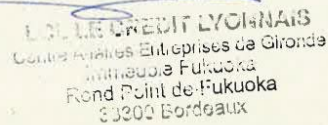 LCL LE CREDIT LYONNAIS
Centre Affaires Entreprises de Gironde
Immeuble Fukuoka
Rond Point de Fukuoka
33300 Bordeaux